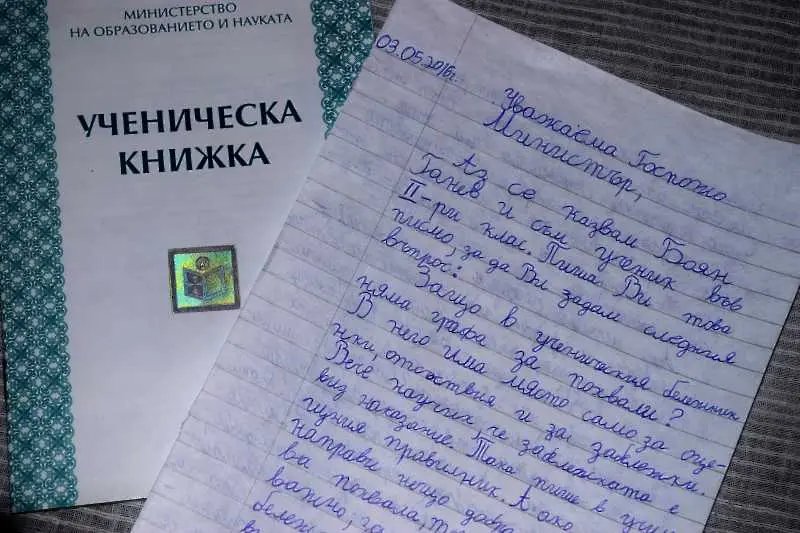 МИНИСТЕРСТВО
НА ОБРАЗОВАНИЕТО И НАУКАТА
УЧЕНИЧЕСКА
КНИЖКА
03.05.2016г.
Уважаема Госпожо
Министър,
Аз се казвам Боян
Ганев и съм ученик във
II-ри клас. Пиша Ви това
писмо, за да Ви задам следния
въпрос:
Защо в ученическия бележник
няма графа за похвали?
В него има място само за оце-
нки, отсъствия и за забележки.
Вече научих, че забележката е
виз наказание. Така пише в учили
щния правилник. А ако
направи нещо добро
ва похвала,
важно, за
бележ